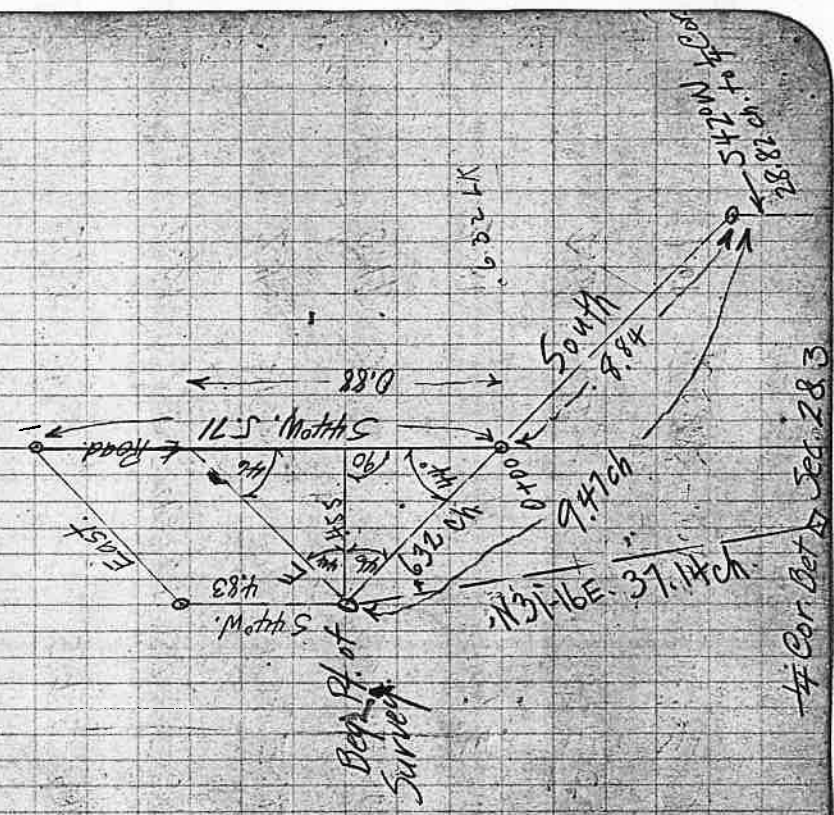 S42°W
28.82 ch. to ¼ Cor.
.632 LK
South
8.84
0.88
S44°W. 5.71
℄ Road.
46
90
44°
0+00
East.
H55
44
46
.632 ch
9.47 ch
4.83
S44°W.
N31-16E. 37.14 ch.
Beg. Pt. of
Survey.
¼ Cor. Bet Sec. 28,3